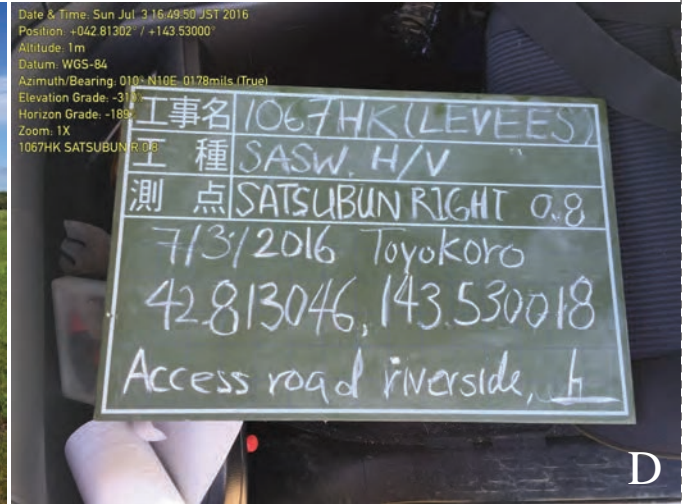 Date & Time: Sun Jul 3 16:49:50 JST 2016
Position: +042.81302° / +143.53000°
Altitude: 1m
Datum: WGS-84
Azimuth/Bearing: 010° N10E 0178mils (True)
Elevation Grade:
Horizon Grade:
Zoom: 1X
1067HK SATSUBUN R 0.8
工事名 1067HK (LEVEES)
工種 SASW. H/V
測点 SATSUBUN RIGHT 0.8
7/3/2016 Toyokoro
42.813046, 143.530018
Access road riverside,
D